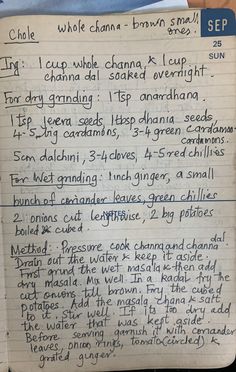 Chole
whole channa - brown small ones.
SEP
25
SUN
Ing: 1 cup whole channa & 1 cup
channa dal soaked overnight.
For dry grinding: 1 tsp anardhana.
1 tsp jeera seeds, 1 tbsp dhania seeds,
4-5 big cardamons, 3-4 green cardamon
cardamons.
5cm dalchini, 3-4 cloves, 4-5 red chillies
For Wet grinding: 1 inch ginger, a small
bunch of coriander leaves, green chillies
NOTES
2 onions cut lengthwise, 2 big potatoes
boiled & cubed.
Method: Pressure cook channa and channa dal
Drain out the water & keep it aside.
First grind the wet masala & then add
dry masala. Mix well. In a kadai fry the
cut onions till brown. Fry the cubed
potatoes. Add the masala, chana & salt
to it. Stir well. If its too dry add
the water that was kept aside.
Before serving garnish it with coriander
leaves, onion rings, tomato (circled) &
grated ginger.